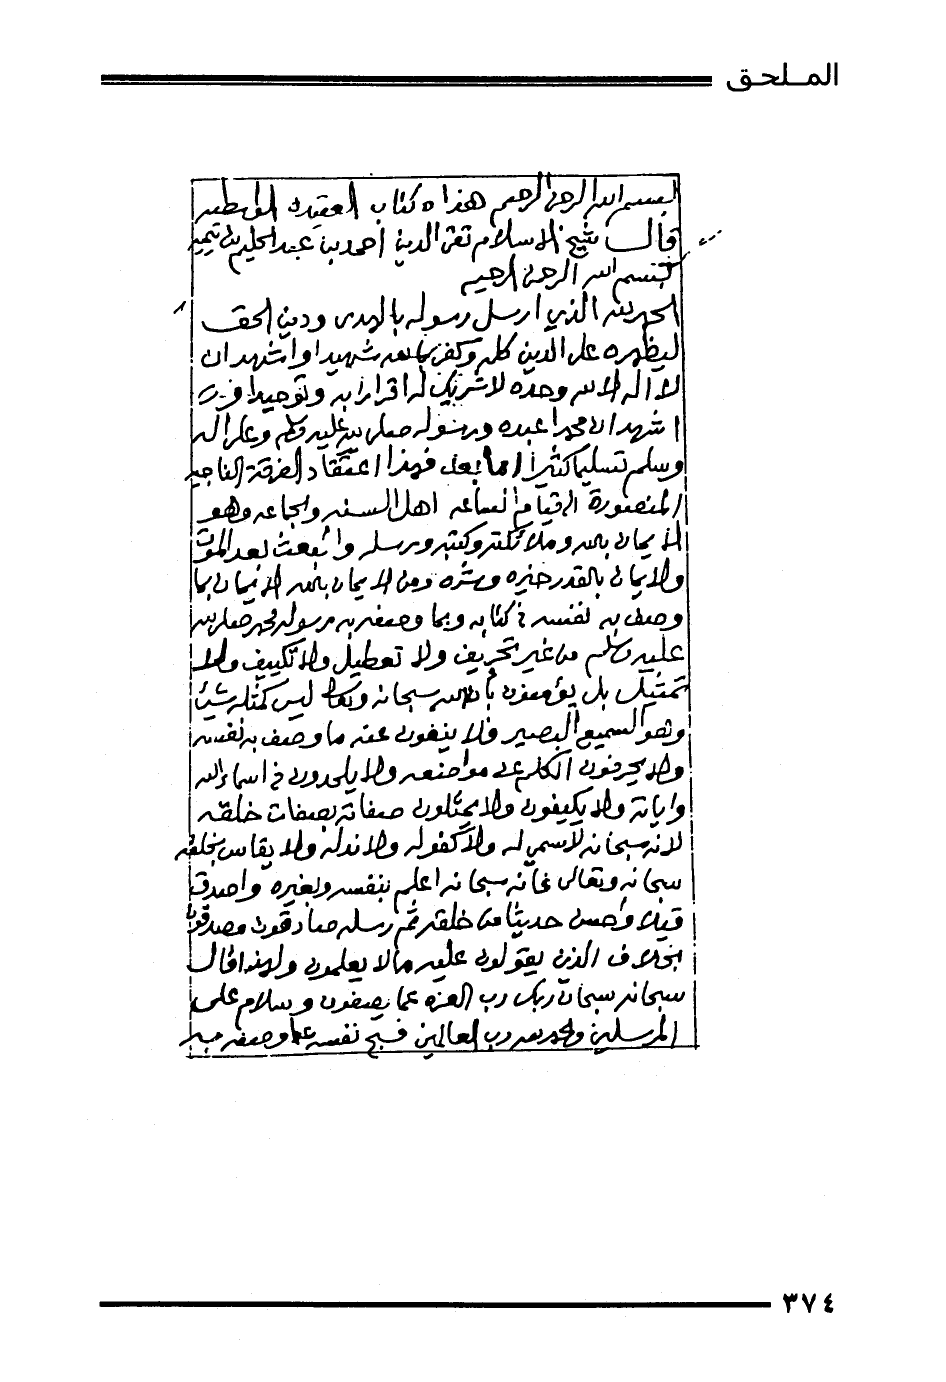 الملحق
بسم الله الرحمن الرحيم هذا كتاب العقيدة الواسطيه
قال شيخ الاسلام تقي الدين احمد بن عبد الحليم بن تيميه
بسم الله الرحمن الرحيم
الحمد لله الذي ارسل رسوله بالهدى ودين الحق
ليظهره على الدين كله وكفى بالله شهيدا واشهد ان
لا اله الا الله وحده لا شريك له اقرارا به وتوحيدا و
اشهد ان محمدا عبده ورسوله صلى الله عليه وسلم وعلى اله
وسلم تسليما كثيرا اما بعد فهذا اعتقاد الفرقة الناجيه
المنصورة الى قيام الساعه اهل السنه والجماعه وهو
الايمان بالله وملائكته وكتبه ورسله والبعث بعد الموت
والايمان بالقدر خيره وشره ومن الايمان بالله الايمان بما
وصف به نفسه في كتابه وبما وصفه به رسوله محمد صلى الله
عليه وسلم من غير تحريف ولا تعطيل ولا تكييف ولا
تمثيل بل يؤمنون بأن الله سبحانه وتعالى ليس كمثله شيئا
وهو السميع البصير فلا ينفون عنه ما وصف به نفسه
ولا يحرفون الكلم عن مواضعه ولا يلحدون في اسماء الله
واياته ولا يكيفون ولا يمثلون صفاته بصفات خلقه
لانه سبحانه لا سمي له ولا كفو له ولا ند له ولا يقاس بخلقه
سبحانه وتعالى فانه سبحانه اعلم بنفسه وبغيره واصدق
قيلا واحسن حديثا من خلقه ثم رسله صادقون مصدقون
بخلاف الذين يقولون عليه ما لا يعلمون ولهذا قال
سبحانه سبحان ربك رب العزه عما يصفون وسلام على
المرسلين والحمد لله رب العالمين فسبح نفسه عما وصفه به
٣٧٤